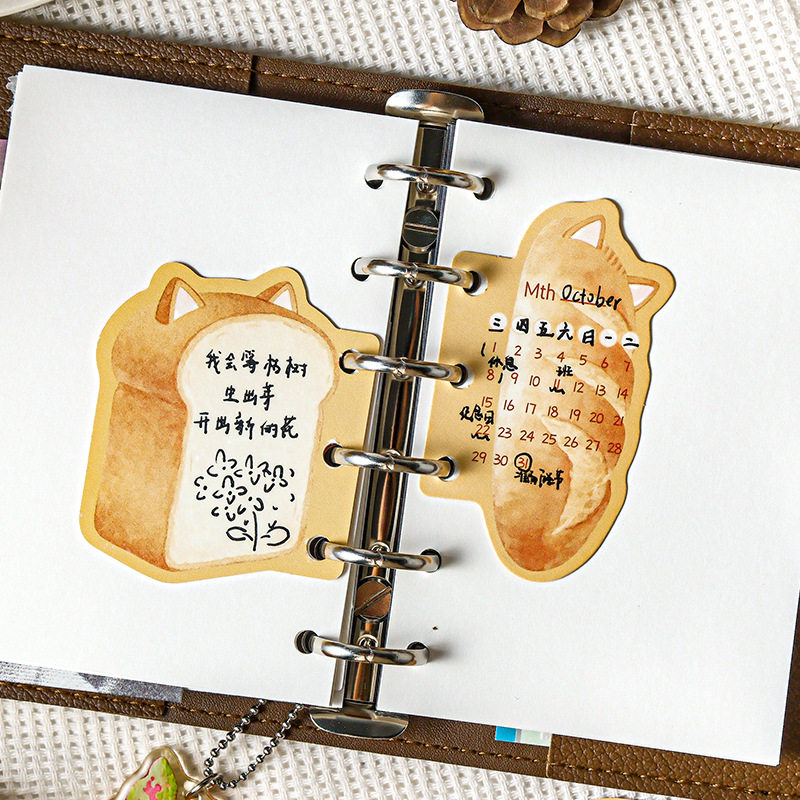 我会等枯树
生出芽
开出新的花
Mth October
三 四 五 六 日 一 二
1 2 3 4 5 6 7
休息 班
8 9 10 11 12 13 14
15 16 17 18 19 20 21
休息日
22 23 24 25 26 27 28
29 30 31